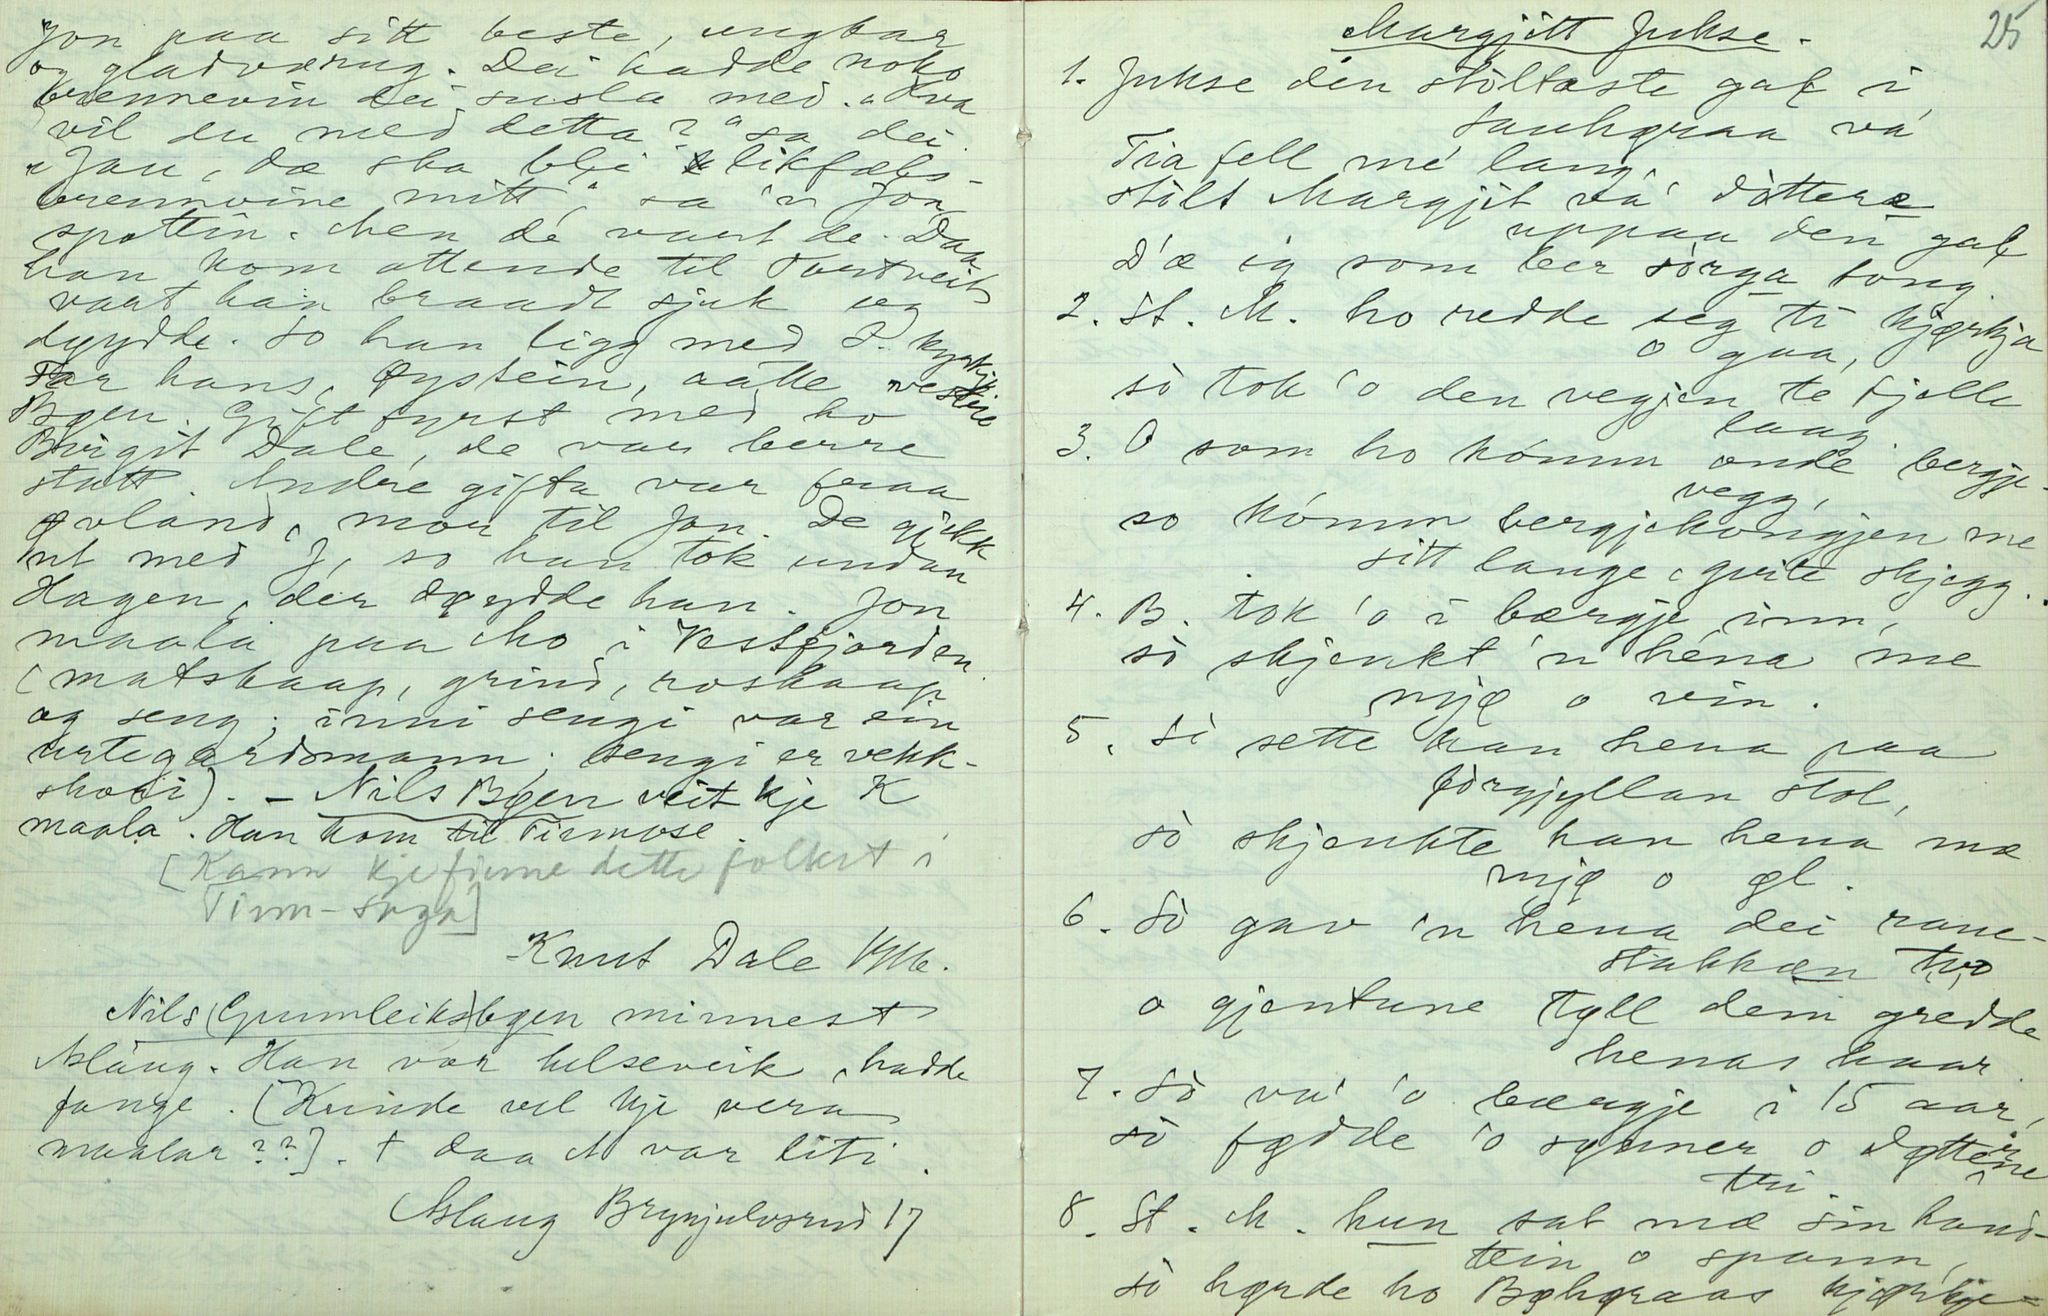 Jon paa sitt beste, ungkar
og gladværug. Dei hadde noko
brennevin dei susla med. "Kva
vil du med detta?" sa dei.
"Jau, dæ ska bli likfæls-
brennvine mitt," sa 'n Jon
spottin. Men de vart de. Daa
han kom attende til Tveitveit
vart han braadt sjuk og
døydde. So han ligg med S. kyrkje
Far hans, Øystein, aatte vestre
Bøen. Gift fyrst med ho
Birgit Dale, de var berre
stutt. Andre gifta var fraa
Øvland, mor til Jon. De gjekk
ut med J, so han tok undan
Hagen, der døydde han. Jon
maala paa Mo i Vestfjorden
(matskaap, grind, roskaap
og seng; inni sengi var ein
urtegardsmann; sengi er vekk-
skori). – Nils Bøen veit kje K
maala. Han kom til Tinnose.
[Kann kje finne dette folket i
Tinn-Soga]
Knut Dale 1916.
Nils (Gunnleiks)bøen minnest
Aslaug. Han var helseveik, hadde
fange. [Kunde vel kje vera
maalar??]. † daa A var liti.
Aslaug Brynjulvsrud 17
25
Margjitt Jukse.
1. Jukse den stoltaste gal i
Sauhgraa va
Tia fell me lang,
stolt Margjit va' dottere
uppaa den gal
D'æ eg som ber sorga tong.
2. St. M. ho redde seg ti kjørkja
o gaa,
so tok 'o den vegjen te fjelle
laag.
3. O som ho komm onde bergje-
vegg,
so komm bergjekongjen me
sitt lange, gvite skjegg.
4. B. tok 'o i bærgje inn,
so skjenkt 'n hena me
mjø o vin.
5. So sette han hena paa
forgjyllan stol,
so skjenkte han hena mæ
mjø o øl.
6. So gav 'n hena dei raue-
stakkæn tvo
o gjentune tyll dem gredde
henas haar.
7. So va' 'o bærgje i 15 aar,
so fødde 'o søner o døttrine
tri
8. St. M. hun sat mæ sin hand-
tein o spann,
so hørde ho Bøhgraas kjørkje-